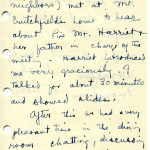 neighbors) met at Mt.
Critchfields home to hear
about Pis Mt. Harriet &
her father in charge of the
meeting - Harriet introduced
me very graciously. I
talked for about 30 minutes
and showed slides.
After this we had a very
pleasant time in the dining
room chatting, discussing